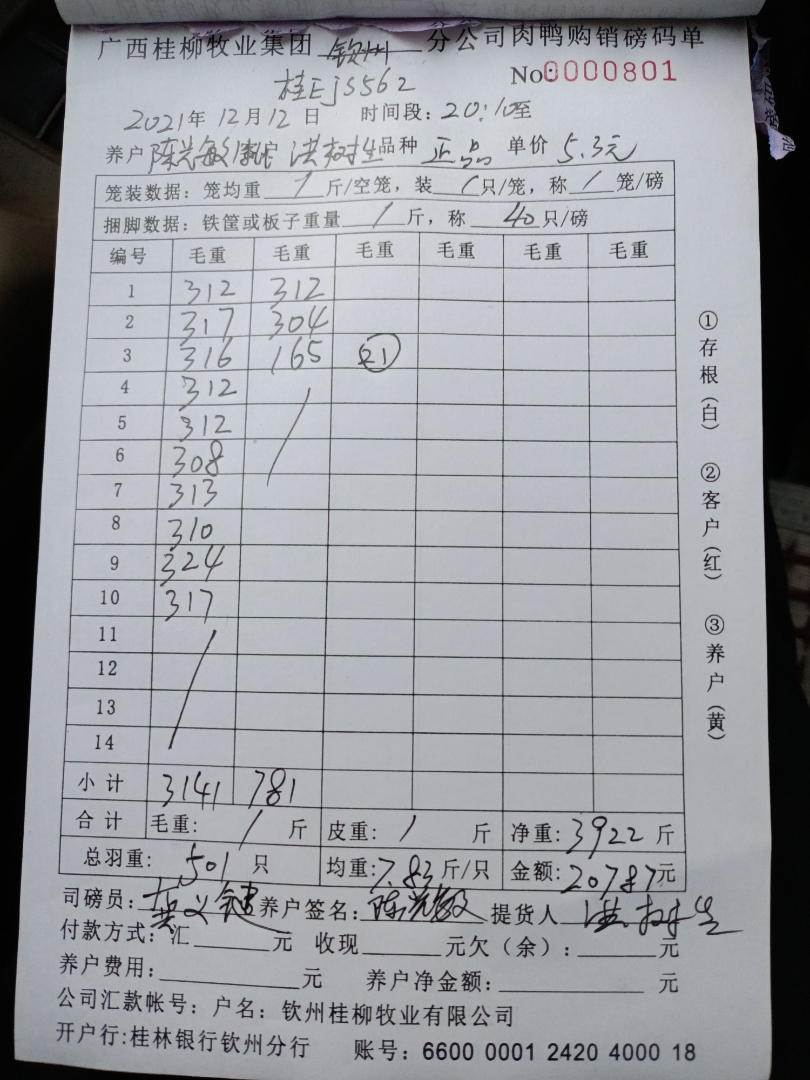 广西桂柳牧业集团 钦州 分公司肉鸭购销磅码单
桂EJS562 No:0000801
2021年12月12日 时间段:20:10至
养户 陈 敏 客户 洪树生 品种 正品 单价 5.3元
笼装数据:笼均重 / 斤/空笼,装 / 只/笼,称 / 笼/磅
捆脚数据:铁筐或板子重量 / 斤,称 40 只/磅
编号 毛重 毛重 毛重 毛重 毛重 毛重
1 312 312
2 317 304
3 316 165 21
4 312 /
5 312
6 308
7 313
8 310
9 324
10 317
11 /
12
13
14
小计 3141 781
合计 毛重: / 斤 皮重: / 斤 净重:3922 斤
总羽重: 501 只 均重:7.83斤/只 金额:20787元
司磅员: 养户签名: 陈 敏 提货人 洪树生
付款方式:汇 元 收现 元欠(余): 元
养户费用: 元 养户净金额: 元
公司汇款帐号:户名:钦州桂柳牧业有限公司
开户行:桂林银行钦州分行 账号:6600 0001 2420 4000 18
①存根(白) ②客户(红) ③养户(黄)